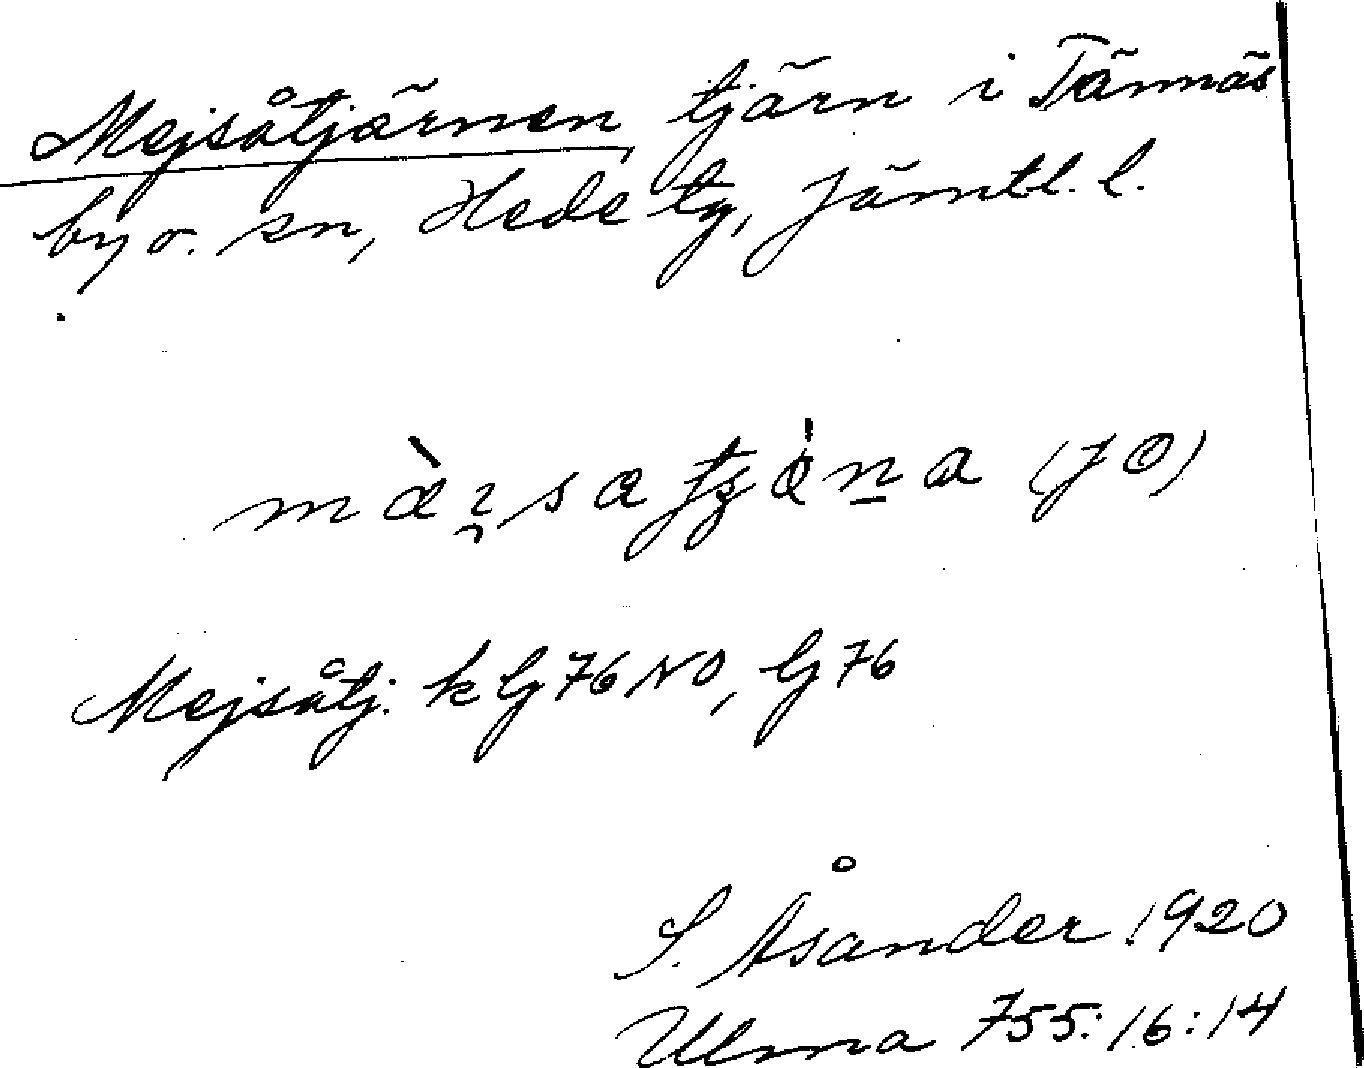 Mejsåtjärnen, tjärn i Tännäs
by o. sn, Hede tg, Jämtl. l.
(JO)
Mejsåtj. k Lj 76 NO, Lj 76
S. Åsander 1920
Ulma 755:16:14